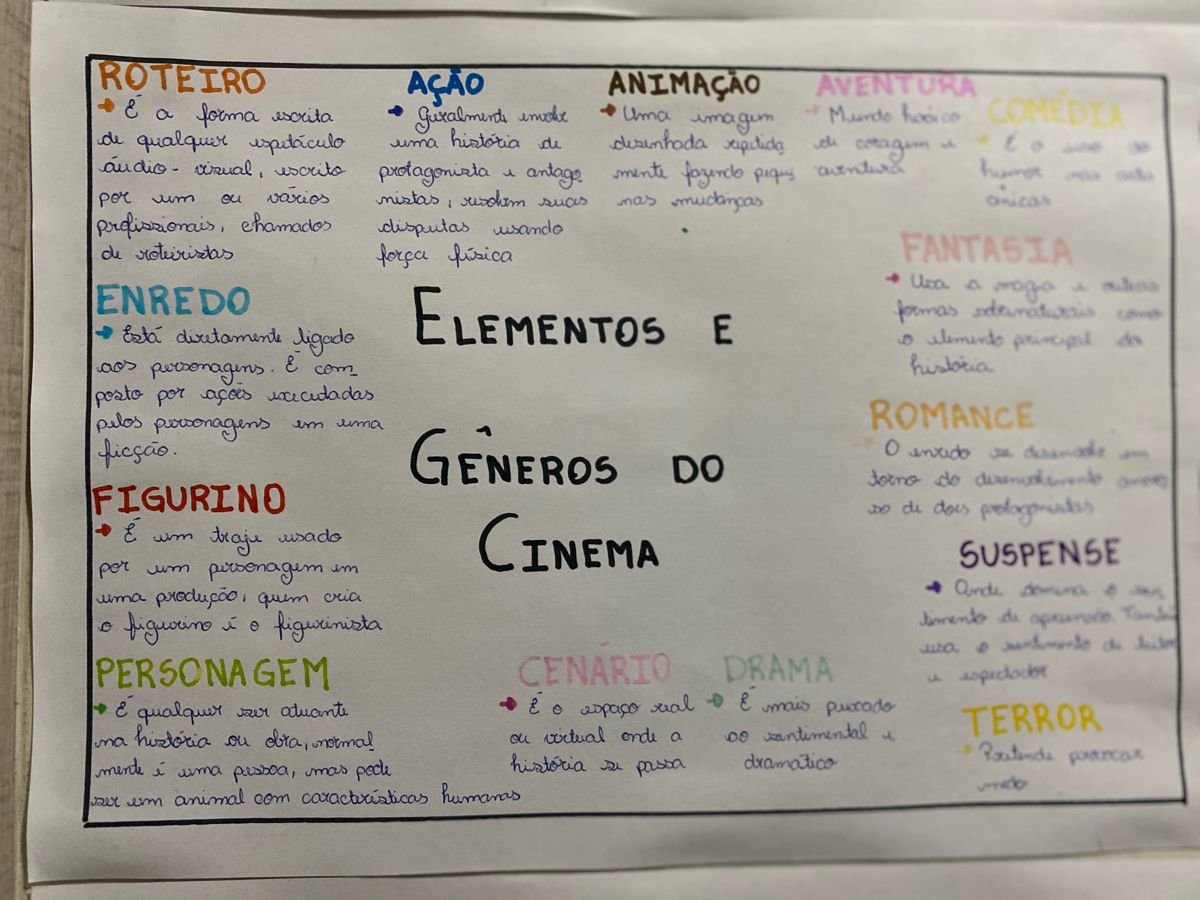 ROTEIRO
É a forma escrita
de qualquer espetáculo
áudio-visual, escrito
por um ou vários
profissionais, chamados
de roteiristas
AÇÃO
Geralmente envolve
uma história de
protagonista e antago
nistas, resolvem suas
disputas usando
força física
ANIMAÇÃO
Uma imagem
desenhada repetida
mente fazendo peque
nas mudanças
AVENTURA
Mundo heróico
de coragem e
aventura
COMÉDIA
É o uso do
humor nas
FANTASIA
Usa a magia e outras
formas sobrenaturais como
o elemento principal da
história
ENREDO
Está diretamente ligado
aos personagens. É com_
posto por ações executadas
pelos personagens em uma
ficção.
ELEMENTOS E
GÊNEROS DO
CINEMA
ROMANCE
O enredo se desenvolve em
torno do desenvolvimento amoro
so de dois protagonistas
FIGURINO
É um traje usado
por um personagem em
uma produção, quem cria
o figurino é o figurinista
SUSPENSE
Onde domina o sen
timento de apreensão.
usa o sentimento de leitor
e espectador
PERSONAGEM
É qualquer ser atuante
na história ou obra, normal
mente é uma pessoa, mas pode
ser um animal com características humanas
CENÁRIO
É o espaço real
ou virtual onde a
história se passa
DRAMA
É mais puxado
ao sentimental e
dramático
TERROR
Pretende provocar
medo